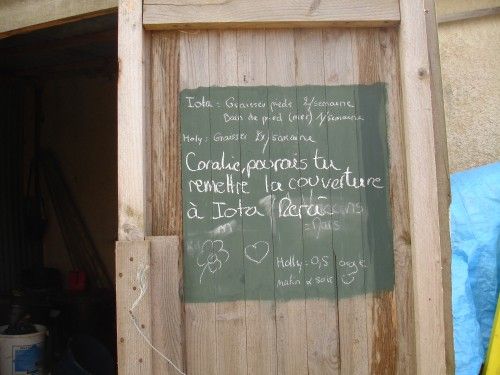 Iota : Graisser pieds 2/semaine
Bain de pied (mer) 1/semaine
Holy : Graisser 2x/semaine
Coralie, pourais tu
remettre la couverture
à Iota
Holly = 0,5 orge
matin & soir